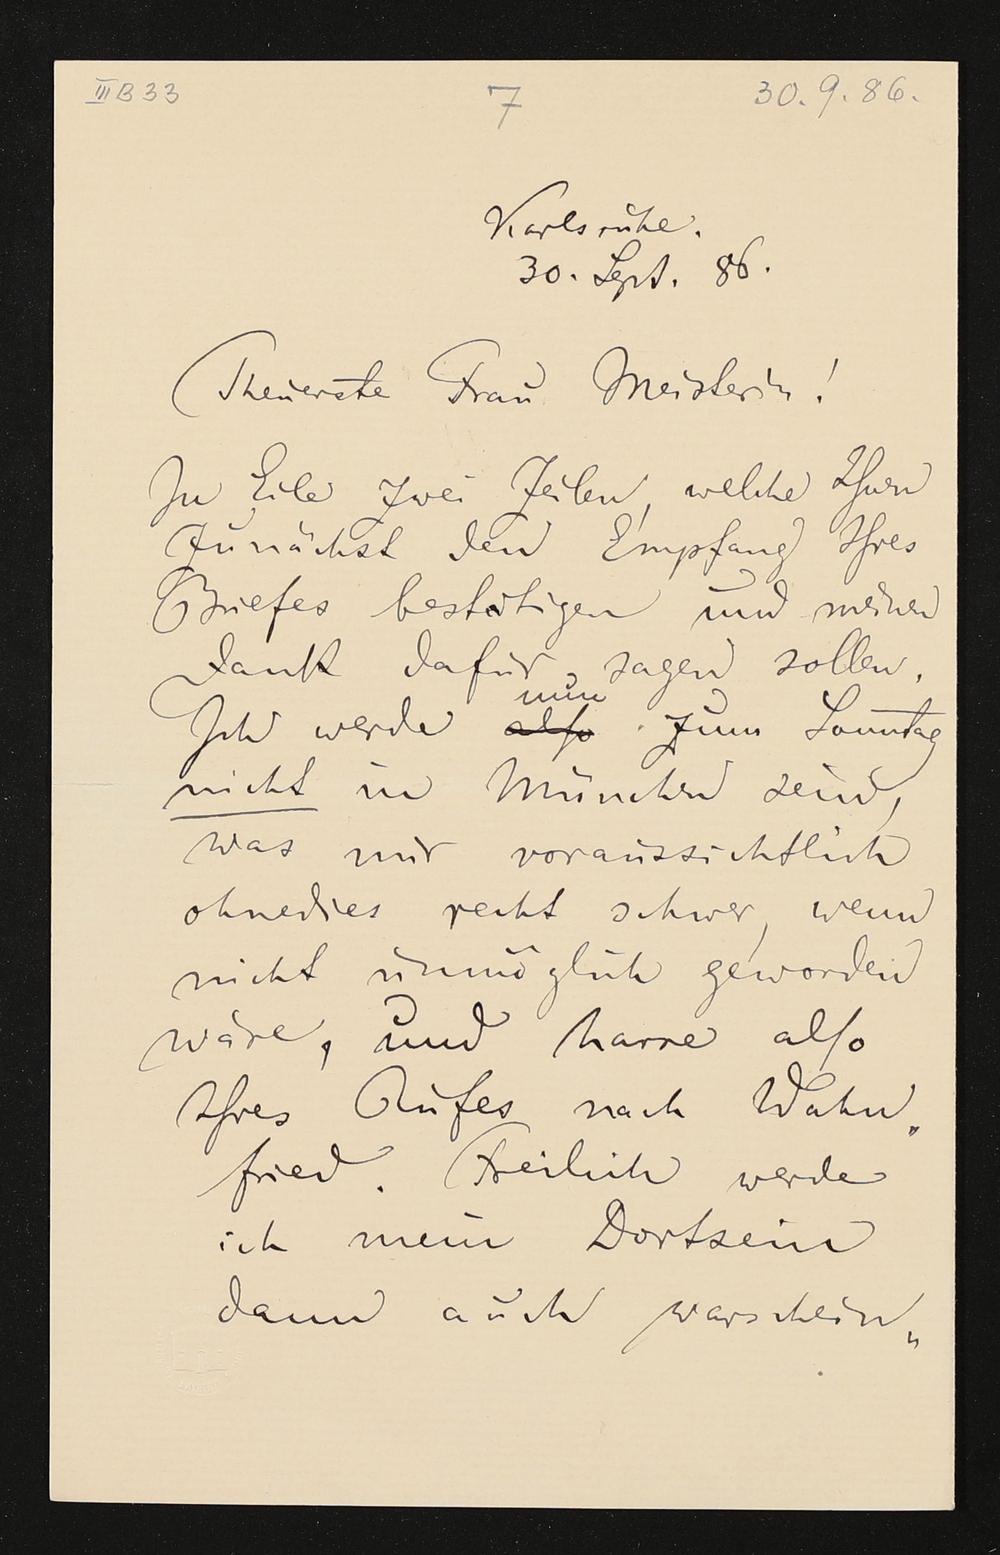 III B 33
7
30. 9. 86.
Karlsruhe.
30. Sept. 86.
Theuerste Frau Meisterin!
In Eile zwei Zeilen, welche Ihnen
zunächst den Empfang Ihres
Briefes bestätigen und meinen
Dank dafür sagen sollen.
nun
Ich werde also zum Sonntag
nicht in München sein,
was mir voraussichtlich
ohnedies recht schwer, wenn
nicht unmöglich geworden
wäre, und harre also
Ihres Rufes nach Wahn„
fried. Freilich werde
ich mein Dortsein
dann auch warschein„